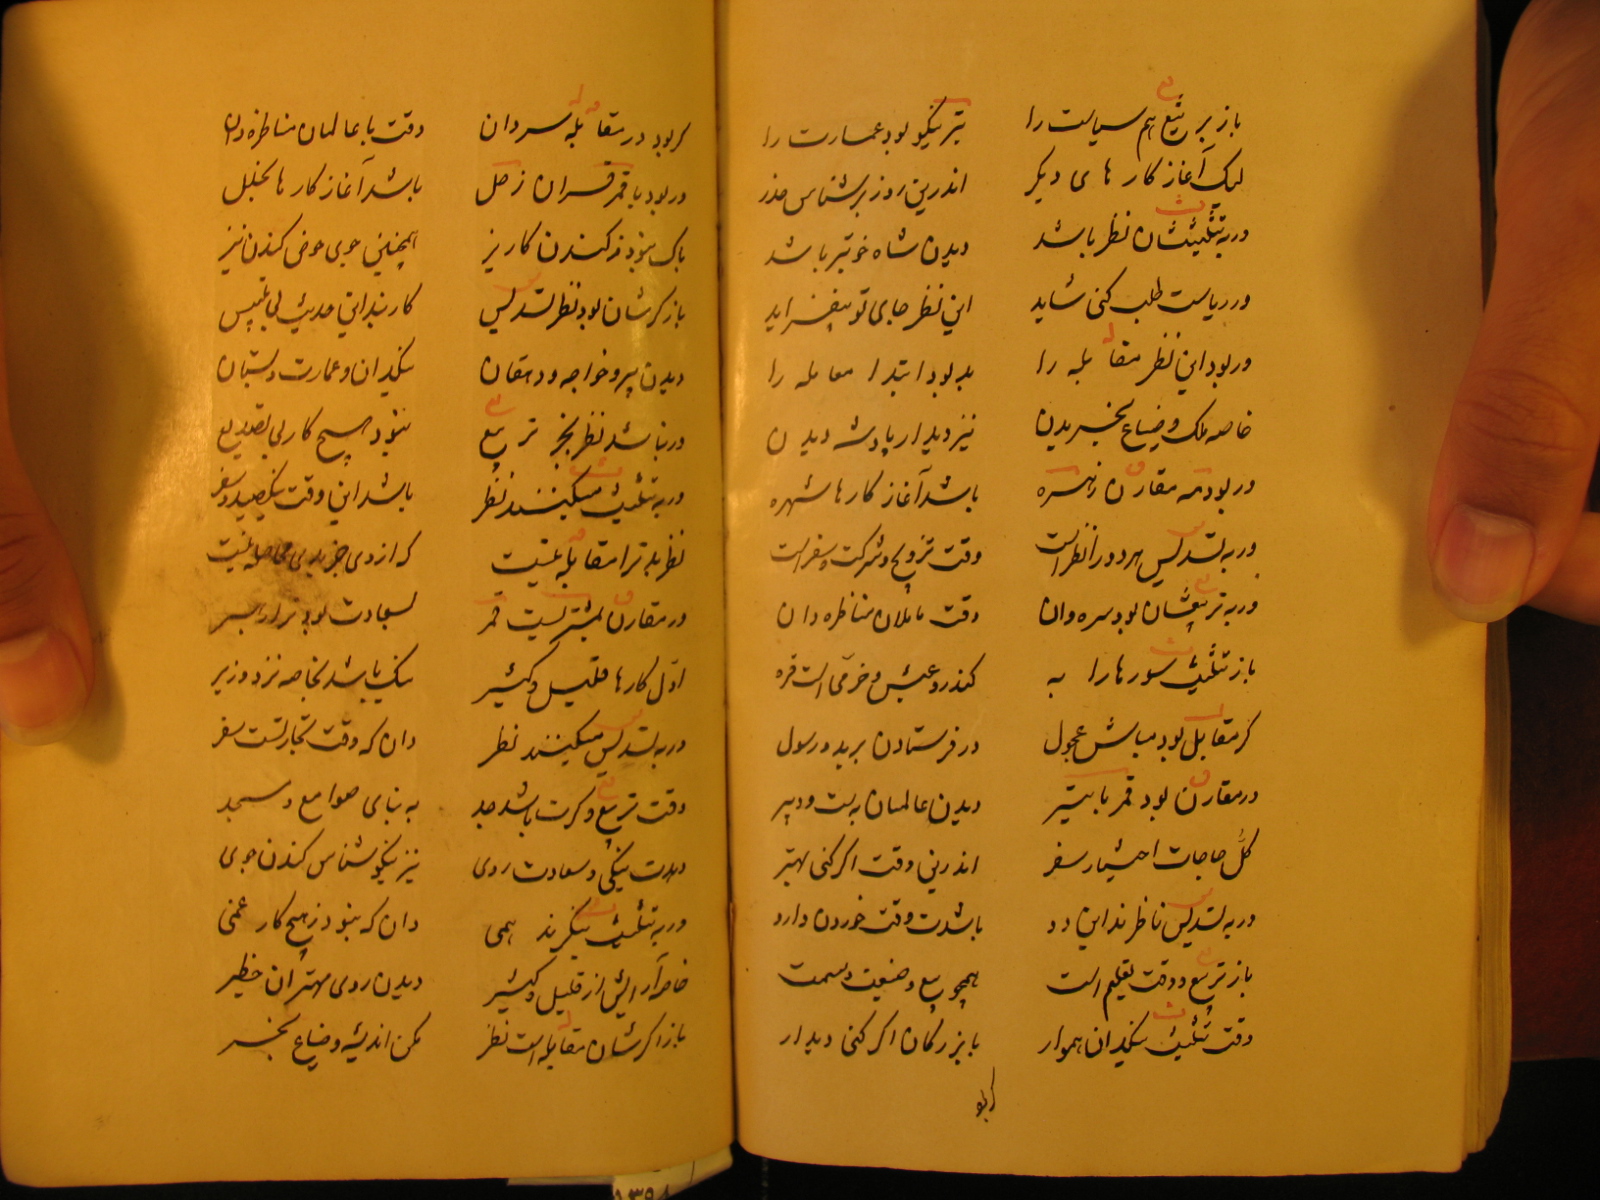 باز بر تربیع هم سیاست را تیر نیکو بود عمارت را
لیک آغاز کارهای دیگر اندرین روز بر شناس حذر
ور به تثلیثشان نظر باشد دیدن شاه خوبتر باشد
ور ریاست طلب کنی شاید این نظر جای تو بیفزاید
ور بود این نظر مقابله را بد بود ابتدا معامله را
خاصه ملک و ضیاع بخریدن نیز دیدار پادشه دیدن
ور بود مه مقارن زهره باشد آغاز کارها شهره
ور به تسدیس هر دو را نظر است وقت تزویج و شرکت و سفر است
ور به تربیعشان بود سره دان وقت مناظره دان
باز تثلیث سورها را به کندرو عیش و خرمی است فره
گر مقابل بود مباش عجول در فرستادن برید و رسول
در مقارن بود قمر با تیر دیدن عالمان و دبیر
کل حاجات اختیار سفر اندرین وقت اگر کنی بهتر
ور به تسدیس ناظرند این دو باشدت وقت خوردن دارو
باز تربیع و وقت تعلیم است همچو بیع و ضیعت و
وقت تثلیث نیک دان هموار با بزرگان اگر کنی دیدار
گر بو
گر بود در مقابله سر دان وقت با عالمان مناظره دان
ور بود با قمر قران زحل باشد آغاز کارها بخلل
باک نبود ز کندن کاریز همچنین جوی حوض کندن نیز
باز گرشان بود نظر تسدیس کار بند این حدیث بی تلبیس
دیدن پیر و خواجه و دهقان نیک دان و عمارت و بستان
ور نباشد نظر بجز تربیع نبود هیچ کار بی تصدیع
ور به تثلیث میکنند نظر باشد این وقت نیک صید و سفر
نظر بد ترا مقابله نیست که از وی
در مقارن بمشتریست قمر بسعادت بود ترا رهبر
اول کارها قلیل و کثیر نیک باشد بخاصه نزد وزیر
ور به تسدیس میکنند نظر دان که وقت تجارتست و سفر
وقت تربیع و کرت باشد جد به بنای صوامع و مسجد
دهدت نیکی و سعادت روی نیز نیکو شناس کندن جوی
ور به تثلیث بنگرند همی دان که نبود ز هیچ کار غمی
خاصه آرایش از قلیل و کثیر دیدن روی مهتران خطیر
باز اگرشان مقابله است نظر مکن اندیشه و ضیاع بخر